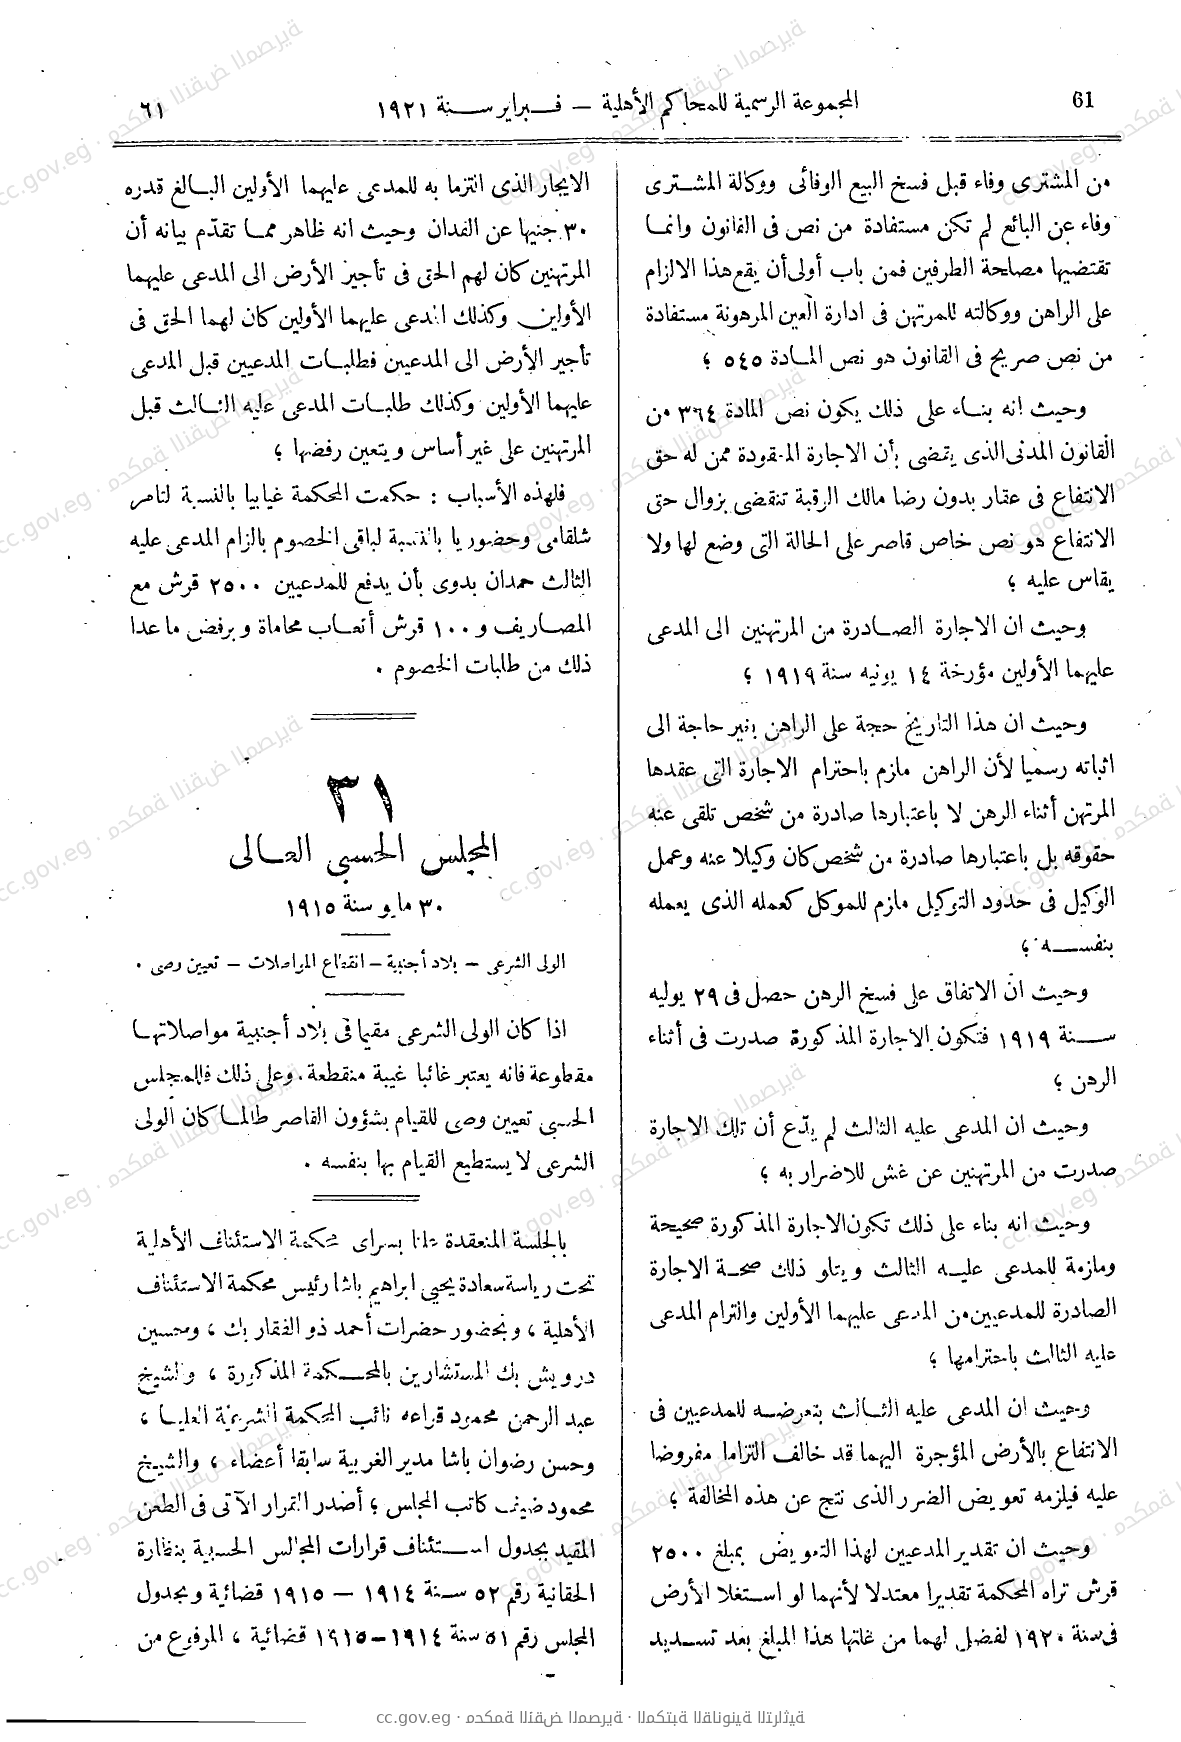 61
المجموعة الرسمية للمحاكم الأهلية – فبراير سنة ١٩٢١
٦١
من المشترى وفاء قبل فسخ البيع الوفائى ووكالة المشترى
وفاء عن البائع لم تكن مستفادة من نص فى القانون وانما
تقتضيها مصلحة الطرفين فمن باب أولى أن يقع هذا الالزام
على الراهن ووكالته للمرتهن فى ادارة العين المرهونة مستفادة
من نص صريح فى القانون هو نص المادة ٥٤٥ ؛
وحيث انه بناء على ذلك يكون نص المادة ٣٦٤ من
القانون المدنى الذى يقضى بأن الاجارة المعقودة ممن له حق
الانتفاع فى عقار بدون رضا مالك الرقبة تنقضى بزوال حق
الانتفاع هو نص خاص قاصر على الحالة التى وضع لها ولا
يقاس عليه ؛
وحيث ان الاجارة الصادرة من المرتهنين الى المدعى
عليهما الأولين مؤرخة ١٤ يونيه سنة ١٩١٩ ؛
وحيث ان هذا التاريخ حجة على الراهن بغير حاجة الى
اثباته رسميا لأن الراهن ملزم باحترام الاجارة التى عقدها
المرتهن أثناء الرهن لا باعتبارها صادرة من شخص تلقى عنه
حقوقه بل باعتبارها صادرة من شخص كان وكيلا عنه وعمل
الوكيل فى حدود التوكيل ملزم للموكل كعمله الذى يعمله
بنفسه ؛
وحيث ان الاتفاق على فسخ الرهن حصل فى ٢٩ يوليه
سنة ١٩١٩ فتكون الاجارة المذكورة صدرت فى أثناء
الرهن ؛
وحيث ان المدعى عليه الثالث لم يدّع أن تلك الاجارة
صدرت من المرتهنين عن غش للاضرار به ؛
وحيث انه بناء على ذلك تكون الاجارة المذكورة صحيحة
وملزمة للمدعى عليه الثالث ويتلو ذلك صحة الاجارة
الصادرة للمدعيين من المدعى عليهما الأولين والتزام المدعى
عليه الثالث باحترامها ؛
وحيث ان المدعى عليه الثالث بتعرضه للمدعيين فى
الانتفاع بالأرض المؤجرة اليهما قد خالف التزاما مفروضا
عليه فيلزمه تعويض الضرر الذى نتج عن هذه المخالفة ؛
وحيث ان تقدير المدعيين لهذا التعويض بمبلغ ٢٥٠٠
قرش تراه المحكمة تقديرا معتدلا لأنهما لو استغلا الأرض
فى سنة ١٩٢٠ لفضل لهما من غلتها هذا المبلغ بعد تسديد
الايجار الذى التزما به للمدعى عليهما الأولين البالغ قدره
٣٠ جنيها عن الفدان وحيث انه ظاهر مما تقدّم بيانه أن
المرتهنين كان لهم الحق فى تأجير الأرض الى المدعى عليهما
الأولين وكذلك المدعى عليهما الأولين كان لهما الحق فى
تأجير الأرض الى المدعيين فطلبات المدعيين قبل المدعى
عليهما الأولين وكذلك طلبات المدعى عليه الثالث قبل
المرتهنين على غير أساس ويتعين رفضها ؛
فلهذه الأسباب : حكمت المحكمة غيابيا بالنسبة لتامر
شلقامى وحضوريا بالنسبة لباقى الخصوم بالزام المدعى عليه
الثالث حمدان بدوى بأن يدفع للمدعيين ٢٥٠٠ قرش مع
المصاريف و ١٠٠ قرش أتعاب محاماة وبرفض ما عدا
ذلك من طلبات الخصوم .
٣١
المجلس الحسبى العالى
٣٠ مايو سنة ١٩١٥
الولى الشرعى – بلاد أجنبية – انقطاع المواصلات – تعيين وصى .
اذا كان الولى الشرعى مقيما فى بلاد أجنبية مواصلاتها
مقطوعة فانه يعتبر غائبا غيبة منقطعة . وعلى ذلك فللمجلس
الحسبى تعيين وصى للقيام بشؤون القاصر طالما كان الولى
الشرعى لا يستطيع القيام بها بنفسه .
بالجلسة المنعقدة علنا بسراى محكمة الاستئناف الأهلية
تحت رياسة سعادة يحيى ابراهيم باشا رئيس محكمة الاستئناف
الأهلية ، وبحضور حضرات أحمد ذو الفقار بك ، وحسين
درويش بك المستشارين بالمحكمة المذكورة ، والشيخ
عبد الرحمن محمود قراعه نائب المحكمة الشرعية العليا ،
وحسن رضوان باشا مدير الغربية سابقا أعضاء ، والشيخ
محمود ضيف كاتب المجلس ؛ أصدر القرار الآتى فى الطعن
المقيد بجدول استئناف قرارات المجالس الحسبية بنظارة
الحقانية رقم ٥٢ سنة ١٩١٤ – ١٩١٥ قضائية وبجدول
المجلس رقم ٥١ سنة ١٩١٤–١٩١٥ قضائية ، المرفوع من
cc.gov.eg · محكمة النقض المصرية · المكتبة القانونية التراثية